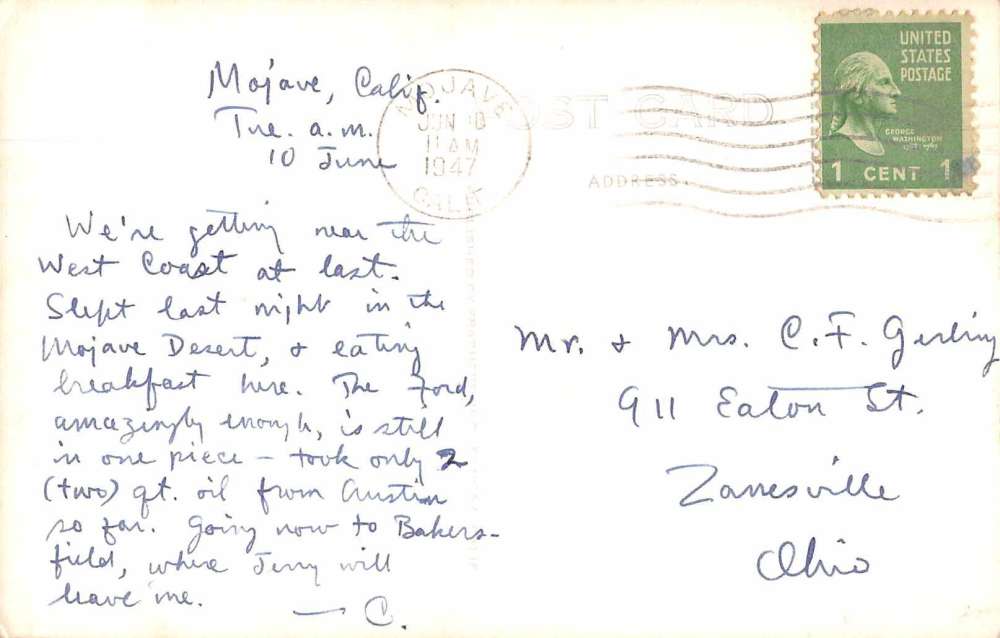 Mojave, Calif.
Tue. a.m.
10 June
MOJAVE
JUN 10
11 AM
1947
CALIF.
POST CARD
ADDRESS
UNITED
STATES
POSTAGE
GEORGE
WASHINGTON
1 CENT 1
We're getting near the
West Coast at last.
Slept last night in the
Mojave Desert, & eating
breakfast here. The Ford,
amazingly enough, is still
in one piece – took only 2
(two) qt. oil from Austin
so far. Going now to Bakers-
field, where Jerry will
leave me.
— C.
Mr. & Mrs. C. F. Gerling
911 Eaton St.
Zanesville
Ohio